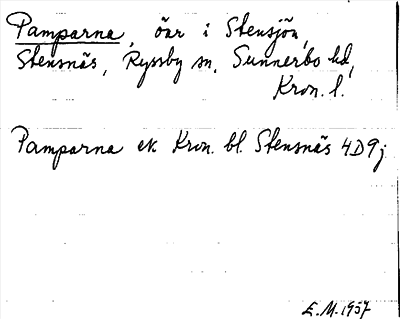 Pamparna, öar i Stensjön,
Stensnäs, Ryssby sn, Sunnerbo hd,
Kron. l.
Pamparna ek Kron. bl. Stensnäs 4D9j
E.M. 1957